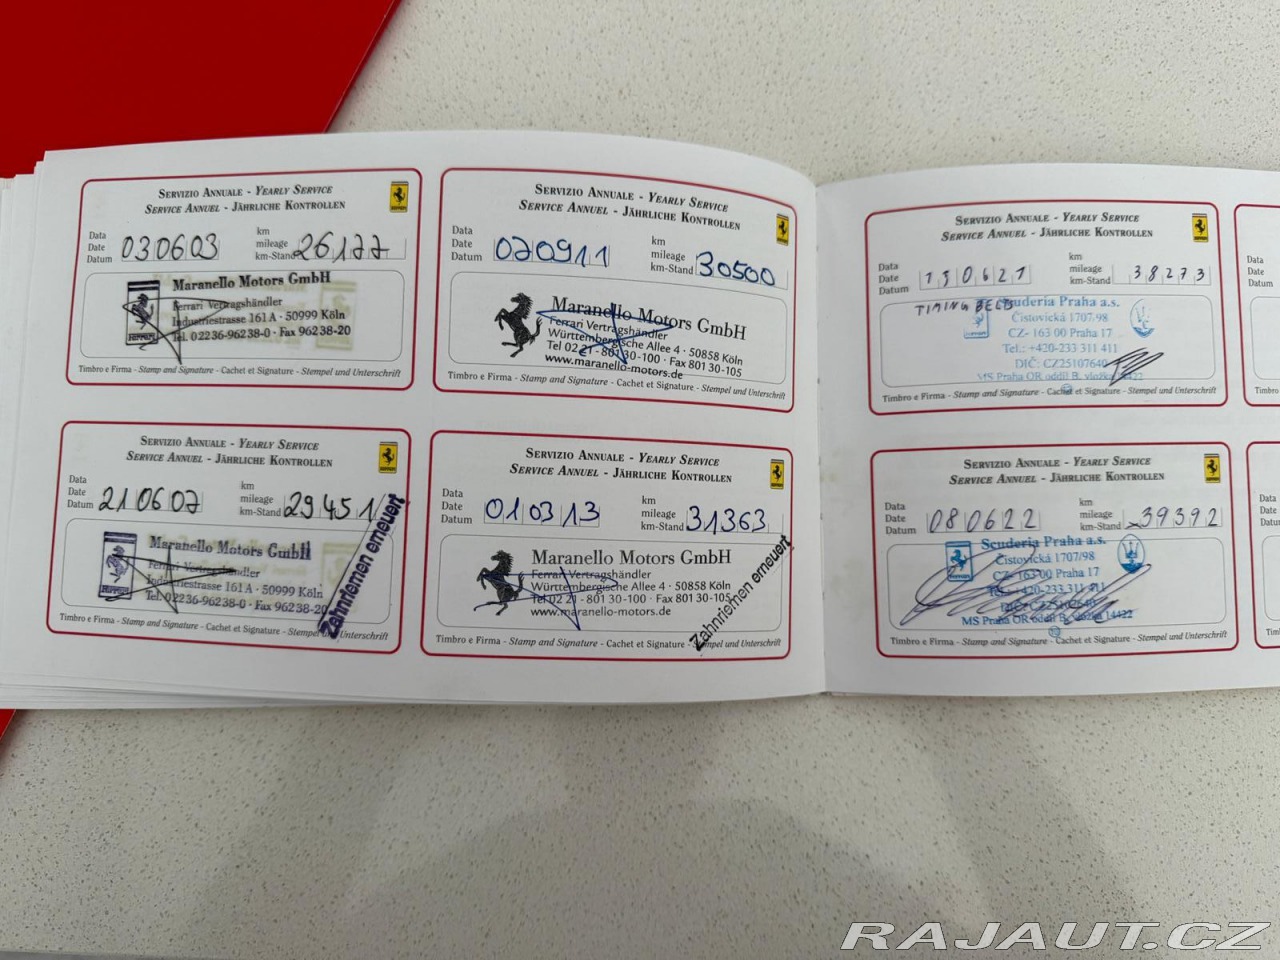 SERVIZIO ANNUALE - YEARLY SERVICE
SERVICE ANNUEL - JÄHRLICHE KONTROLLEN
Data
Date
Datum
030603
km
mileage
km-Stand
26177
Maranello Motors GmbH
Ferrari Vertragshändler
Industriestrasse 161 A · 50999 Köln
Tel. 02236-96238-0 · Fax 96238-20
Ferrari
Timbro e Firma - Stamp and Signature - Cachet et Signature - Stempel und Unterschrift
SERVIZIO ANNUALE - YEARLY SERVICE
SERVICE ANNUEL - JÄHRLICHE KONTROLLEN
Data
Date
Datum
210607
km
mileage
km-Stand
29451
Maranello Motors GmbH
Ferrari Vertragshändler
Industriestrasse 161 A · 50999 Köln
Tel. 02236-96238-0 · Fax 96238-20
Zahnriemen erneuert
Timbro e Firma - Stamp and Signature - Cachet et Signature - Stempel und Unterschrift
SERVIZIO ANNUALE - YEARLY SERVICE
SERVICE ANNUEL - JÄHRLICHE KONTROLLEN
Data
Date
Datum
070911
km
mileage
km-Stand
30500
Maranello Motors GmbH
Ferrari Vertragshändler
Württembergische Allee 4 · 50858 Köln
Tel 02 21 - 801 30-100 · Fax 801 30-105
www.maranello-motors.de
Timbro e Firma - Stamp and Signature - Cachet et Signature - Stempel und Unterschrift
SERVIZIO ANNUALE - YEARLY SERVICE
SERVICE ANNUEL - JÄHRLICHE KONTROLLEN
Data
Date
Datum
010313
km
mileage
km-Stand
31363
Maranello Motors GmbH
Ferrari Vertragshändler
Württembergische Allee 4 · 50858 Köln
Tel 02 21 - 801 30-100 · Fax 801 30-105
www.maranello-motors.de
Zahnriemen erneuert
Timbro e Firma - Stamp and Signature - Cachet et Signature - Stempel und Unterschrift
SERVIZIO ANNUALE - YEARLY SERVICE
SERVICE ANNUEL - JÄHRLICHE KONTROLLEN
Data
Date
Datum
130621
km
mileage
km-Stand
38273
TIMING BELTS
Scuderia Praha a.s.
Čistovická 1707/98
CZ- 163 00 Praha 17
Tel.: +420-233 311 411
DIČ: CZ25107640
MS Praha OR oddíl B, vložka 14422
Timbro e Firma - Stamp and Signature - Cachet et Signature - Stempel und Unterschrift
SERVIZIO ANNUALE - YEARLY SERVICE
SERVICE ANNUEL - JÄHRLICHE KONTROLLEN
Data
Date
Datum
080622
km
mileage
km-Stand
39392
Scuderia Praha a.s.
Čistovická 1707/98
CZ- 163 00 Praha 17
Tel.: +420-233 311 411
DIČ: CZ25107640
MS Praha OR oddíl B, vložka 14422
Timbro e Firma - Stamp and Signature - Cachet et Signature - Stempel und Unterschrift
RAJAUT.CZ